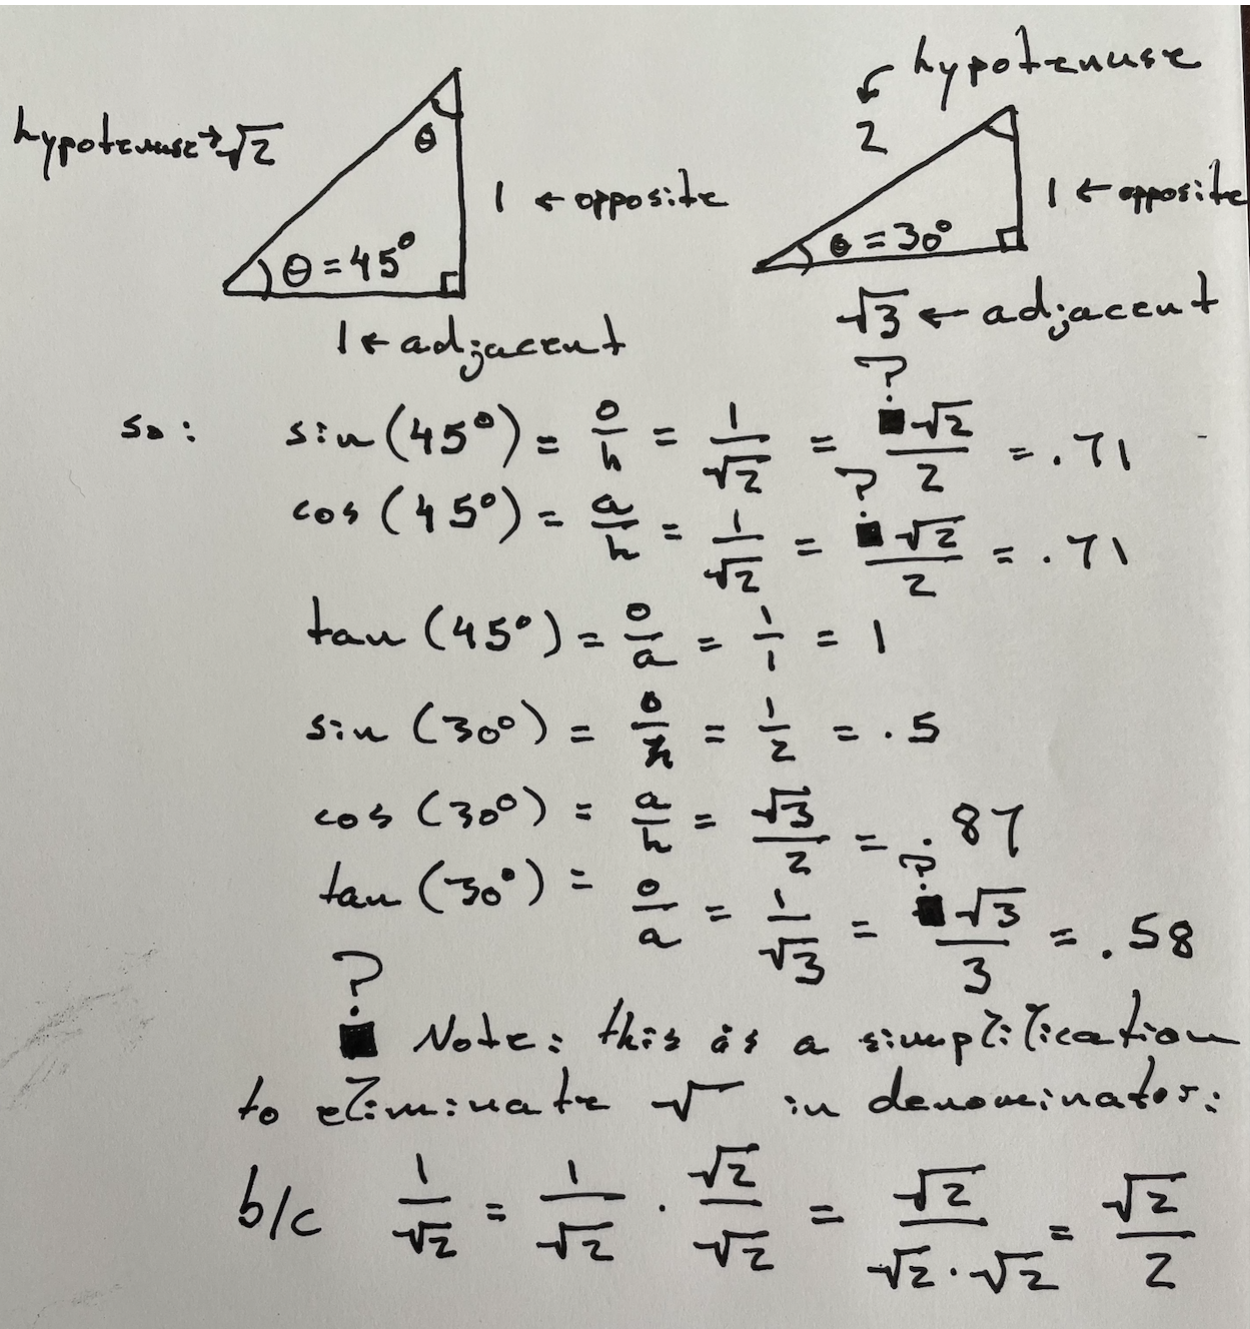 hypotenuse
hypotenuse → √2
2
θ
1 ← opposite
1 ← opposite
θ = 45°
θ = 30°
1 ← adjacent
√3 ← adjacent
?
so: sin (45°) = o/h = 1/√2 = ■ √2/2 = .71
?
cos (45°) = a/h = 1/√2 = ■ √2/2 = .71
tan (45°) = o/a = 1/1 = 1
sin (30°) = o/h = 1/2 = .5
cos (30°) = a/h = √3/2 = .87
?
tan (30°) = o/a = 1/√3 = ■ √3/3 = .58
?
■ Note: this is a simplification
to eliminate √ in denominator:
b/c 1/√2 = 1/√2 · √2/√2 = √2/√2·√2 = √2/2